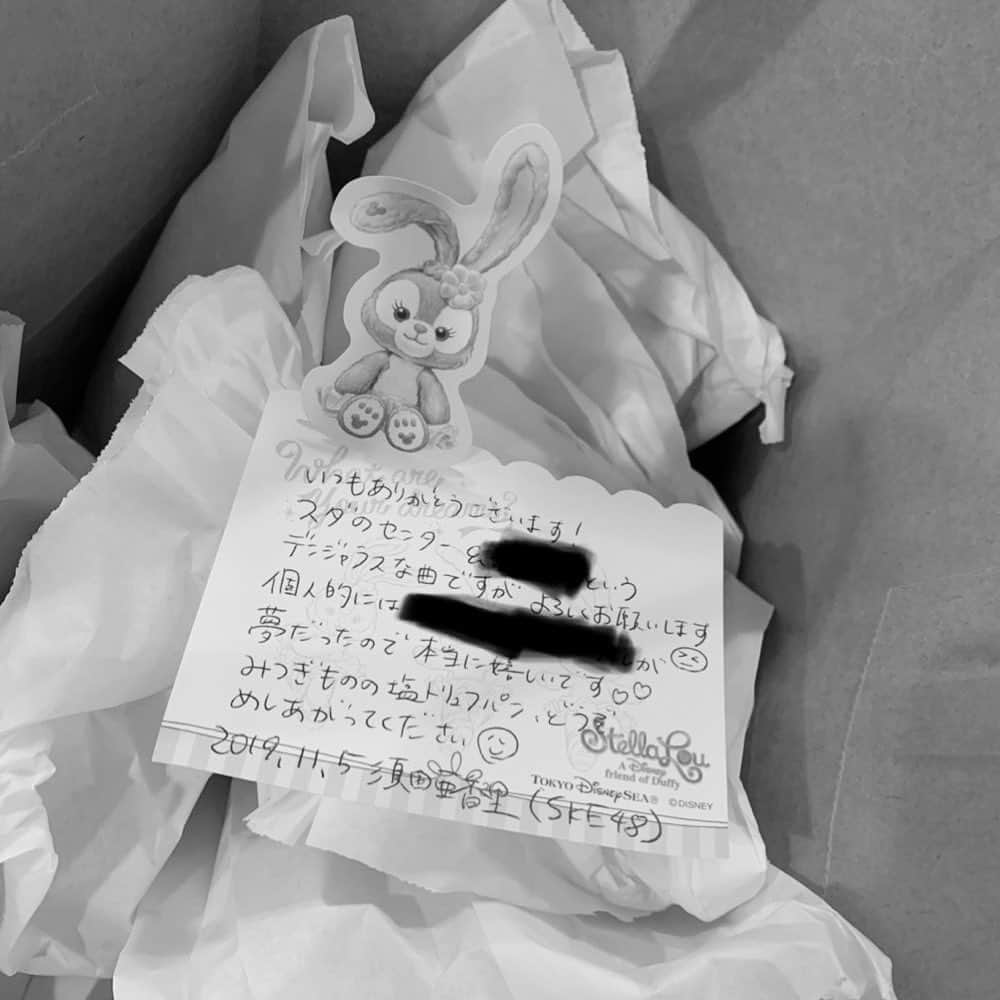 What are
Your dreams?
いつもありがとうございます!
スダのセンター &
という
デンジャラスな曲ですが よろしくお願いします
個人的には
が
夢だったので 本当に嬉しいです♡♡
みつぎものの塩トリュフパン、どうぞ
めしあがってください
2019.11.5 須田亜香里 (SKE48)
Stella Lou
A Disney
friend of Duffy
TOKYO DISNEYSEA® ©DISNEY